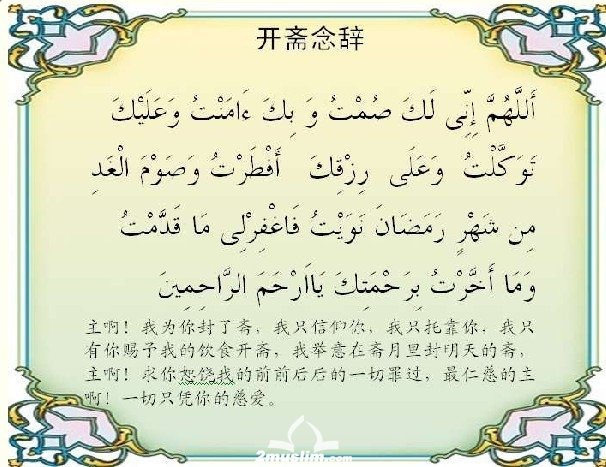 开斋念辞
أَللَّهُمَّ إِنِّى لَكَ صُمْتُ وَ بِكَ ءَامَنْتُ وَعَلَيْكَ
تَوَكَّلْتُ وَعَلَى رِزْقِكَ أَفْطَرْتُ وَصَوْمَ الْغَدِ
مِن شَهْرِ رَمَضَانَ نَوَيْتُ فَاغْفِرْلِى مَا قَدَّمْتُ
وَمَا أَخَّرْتُ بِرَحْمَتِكَ يَاأَرْحَمَ الرَّاحِمِينَ
主啊！我为你封了斋，我只信仰你，我只托靠你．我只
有你赐予我的饮食开斋，我举意在斋月里封明天的斋，
主啊！求你恕饶我的前前后后的一切罪过，最仁慈的主
啊！一切只凭你的慈爱。
2muslim.com